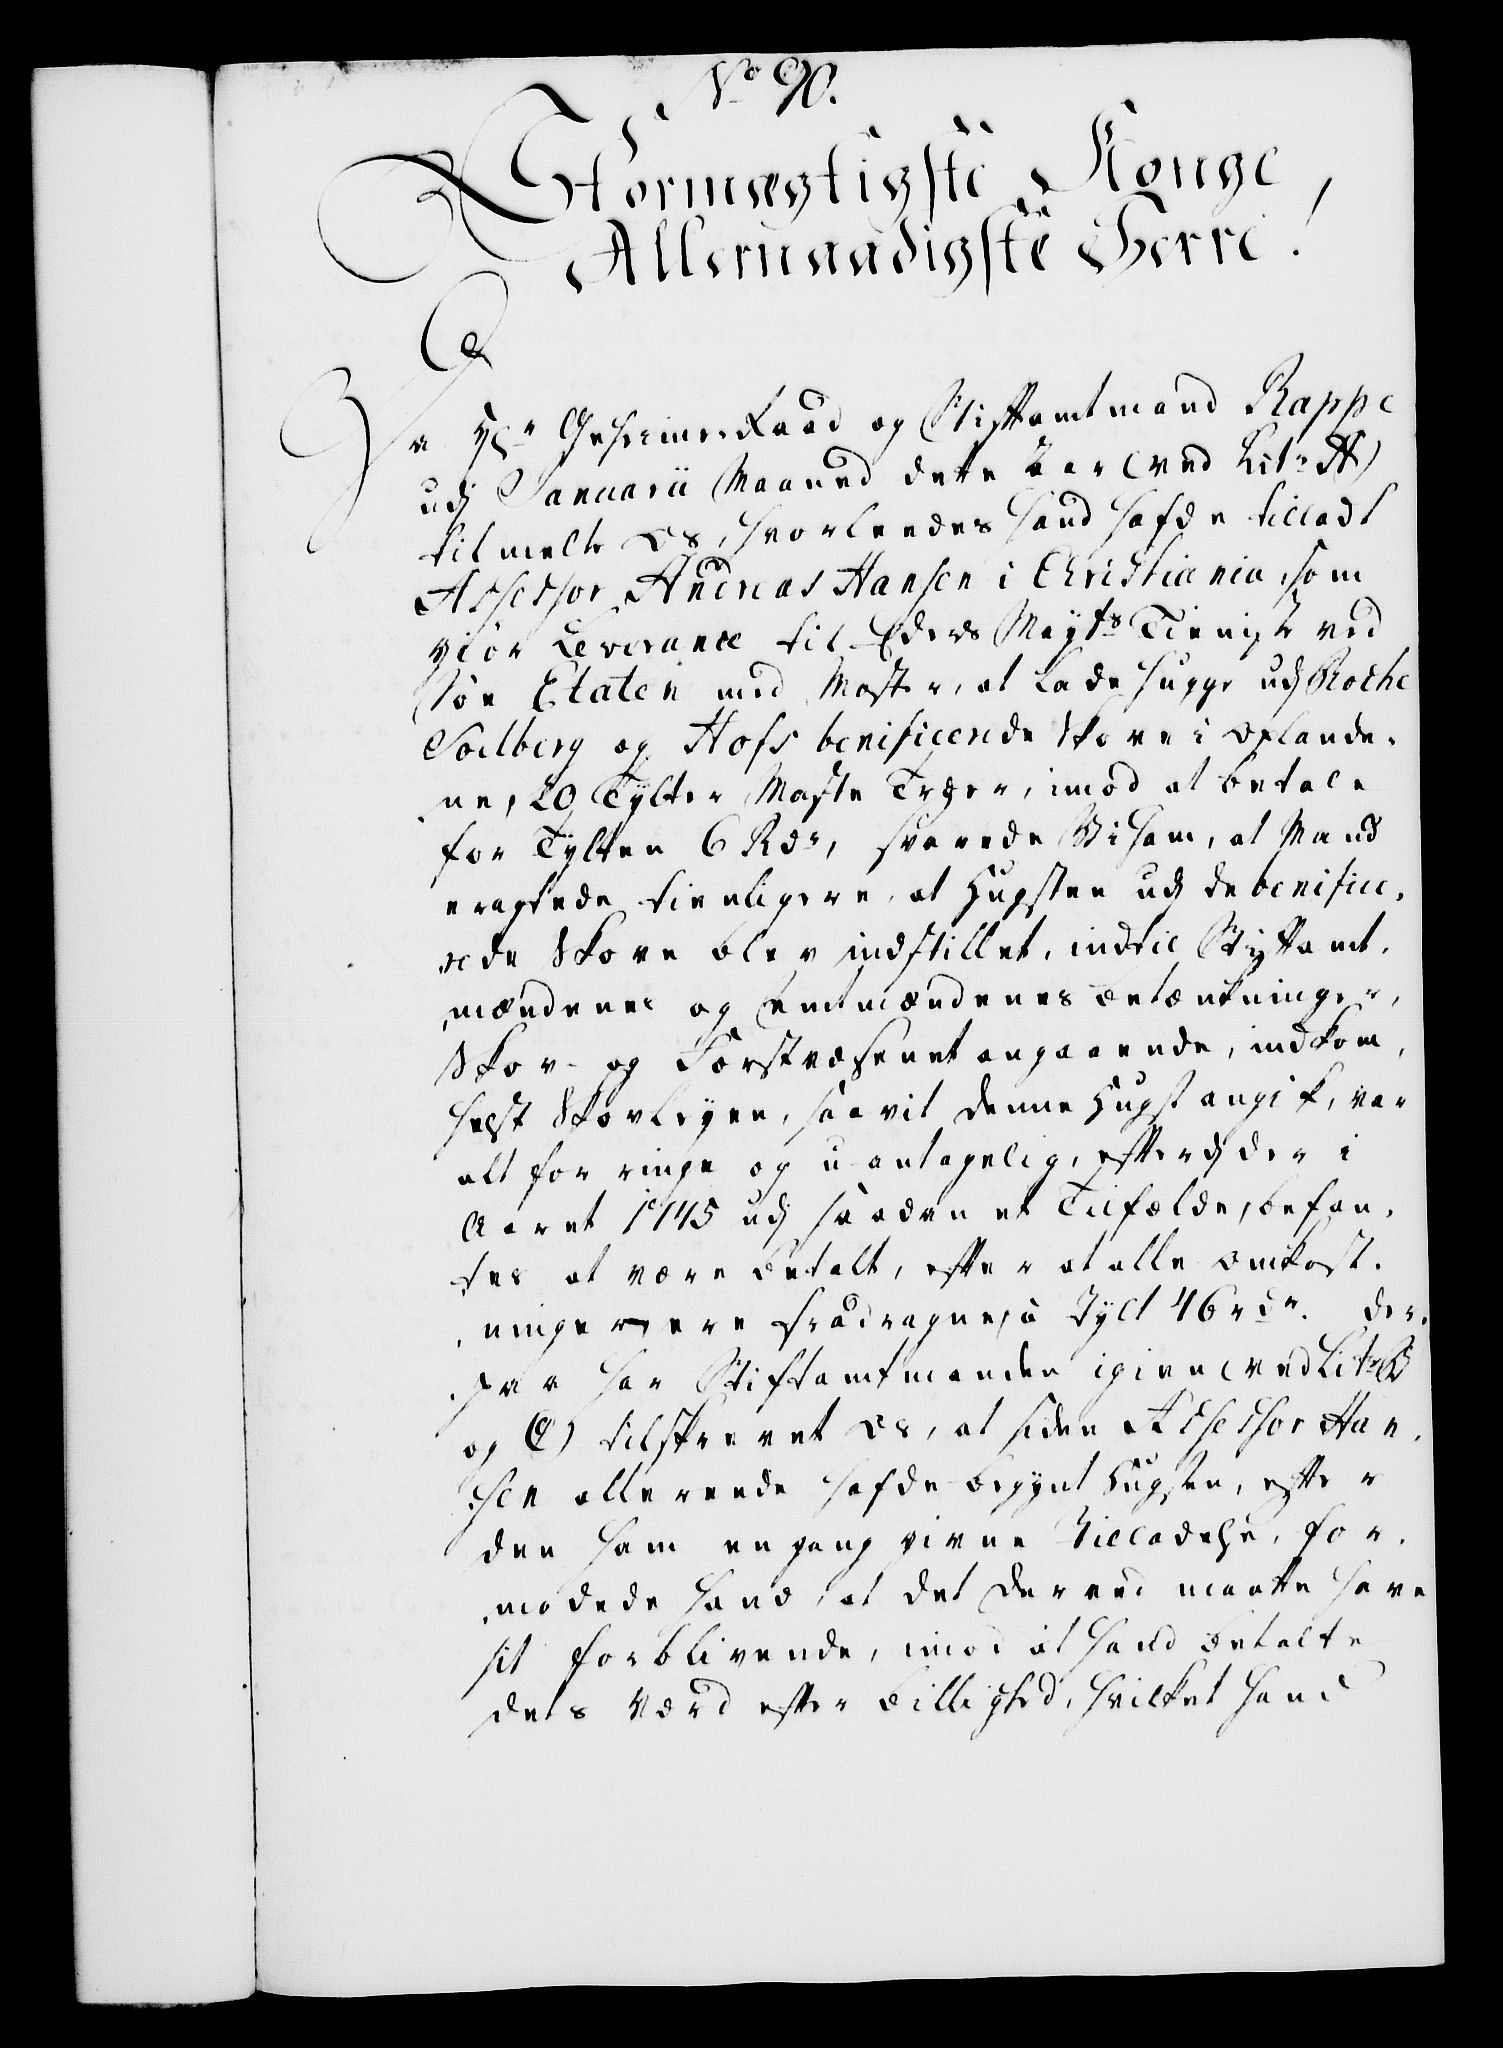 No 90.
Stormægtigste Konge,
Allernaadigste Herre!
Da Hr Geheime-Raad og Stiftamtmand Rappe
udj Januarii Maaned dette Aar (ved Litr A)
tilmelte Os, hvorleedes hand hafde tilladt
Assessor Andreas Hansen i Christiania, som
giør Leverance til Eders Mayts Tieniste ved
Søe Etaten med Master, at lade hugge udj Rothe
Soelberg og Hofs benificerede Skove i Oplande-
ne, 20 Tylter Maste Træer, imod at betale
for Tylten 6 Rdr, svarede Vi ham, at Mand
eragtede tienligere, at Hugsten udj de benifice-
rede Skove blev indstillet, indtil Stiftamt-
mændenes og Amtmændenes betænkninger,
Skov- og Forstvæsenet angaaende, indkom,
helst Skovleyen, saavit denne Hugst angik, var
alt for ringe og u-antagelig, efterdj der i
Aaret 1745 udj saadan et Tilfælde, befan-
tes at være betalt, efter at alle Omkost-
ninger vare fradragne, à Tylt 46 rdr. Der-
paa har Stiftamtmanden igien (ved Litr B
og C) tilskrevet Os, at siden Assessor Han-
sen allereede hafde begynt Hugsten, efter
den ham engang givne Tilladelse, for-
modede hand, at det derved maatte have
sit forblivende, imod at hand betalte
dets Værd efter billighed, hvilket hand